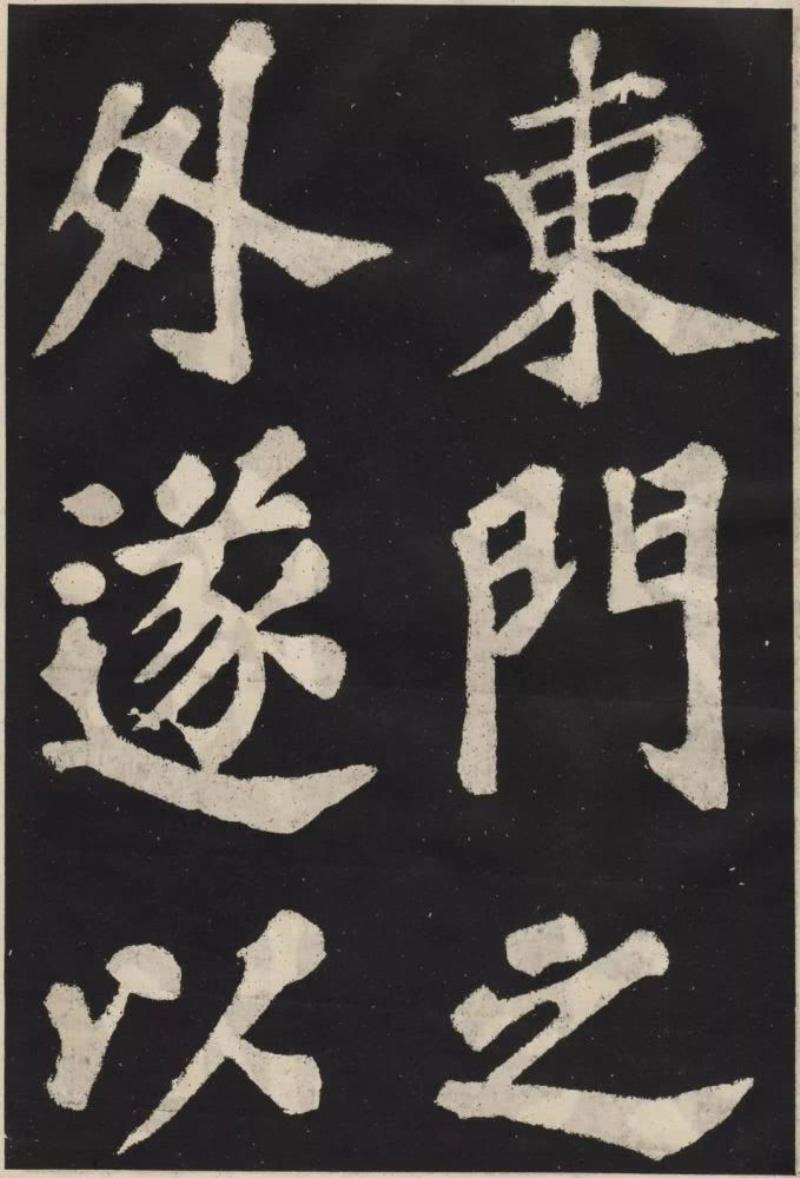 東門之
外遂以